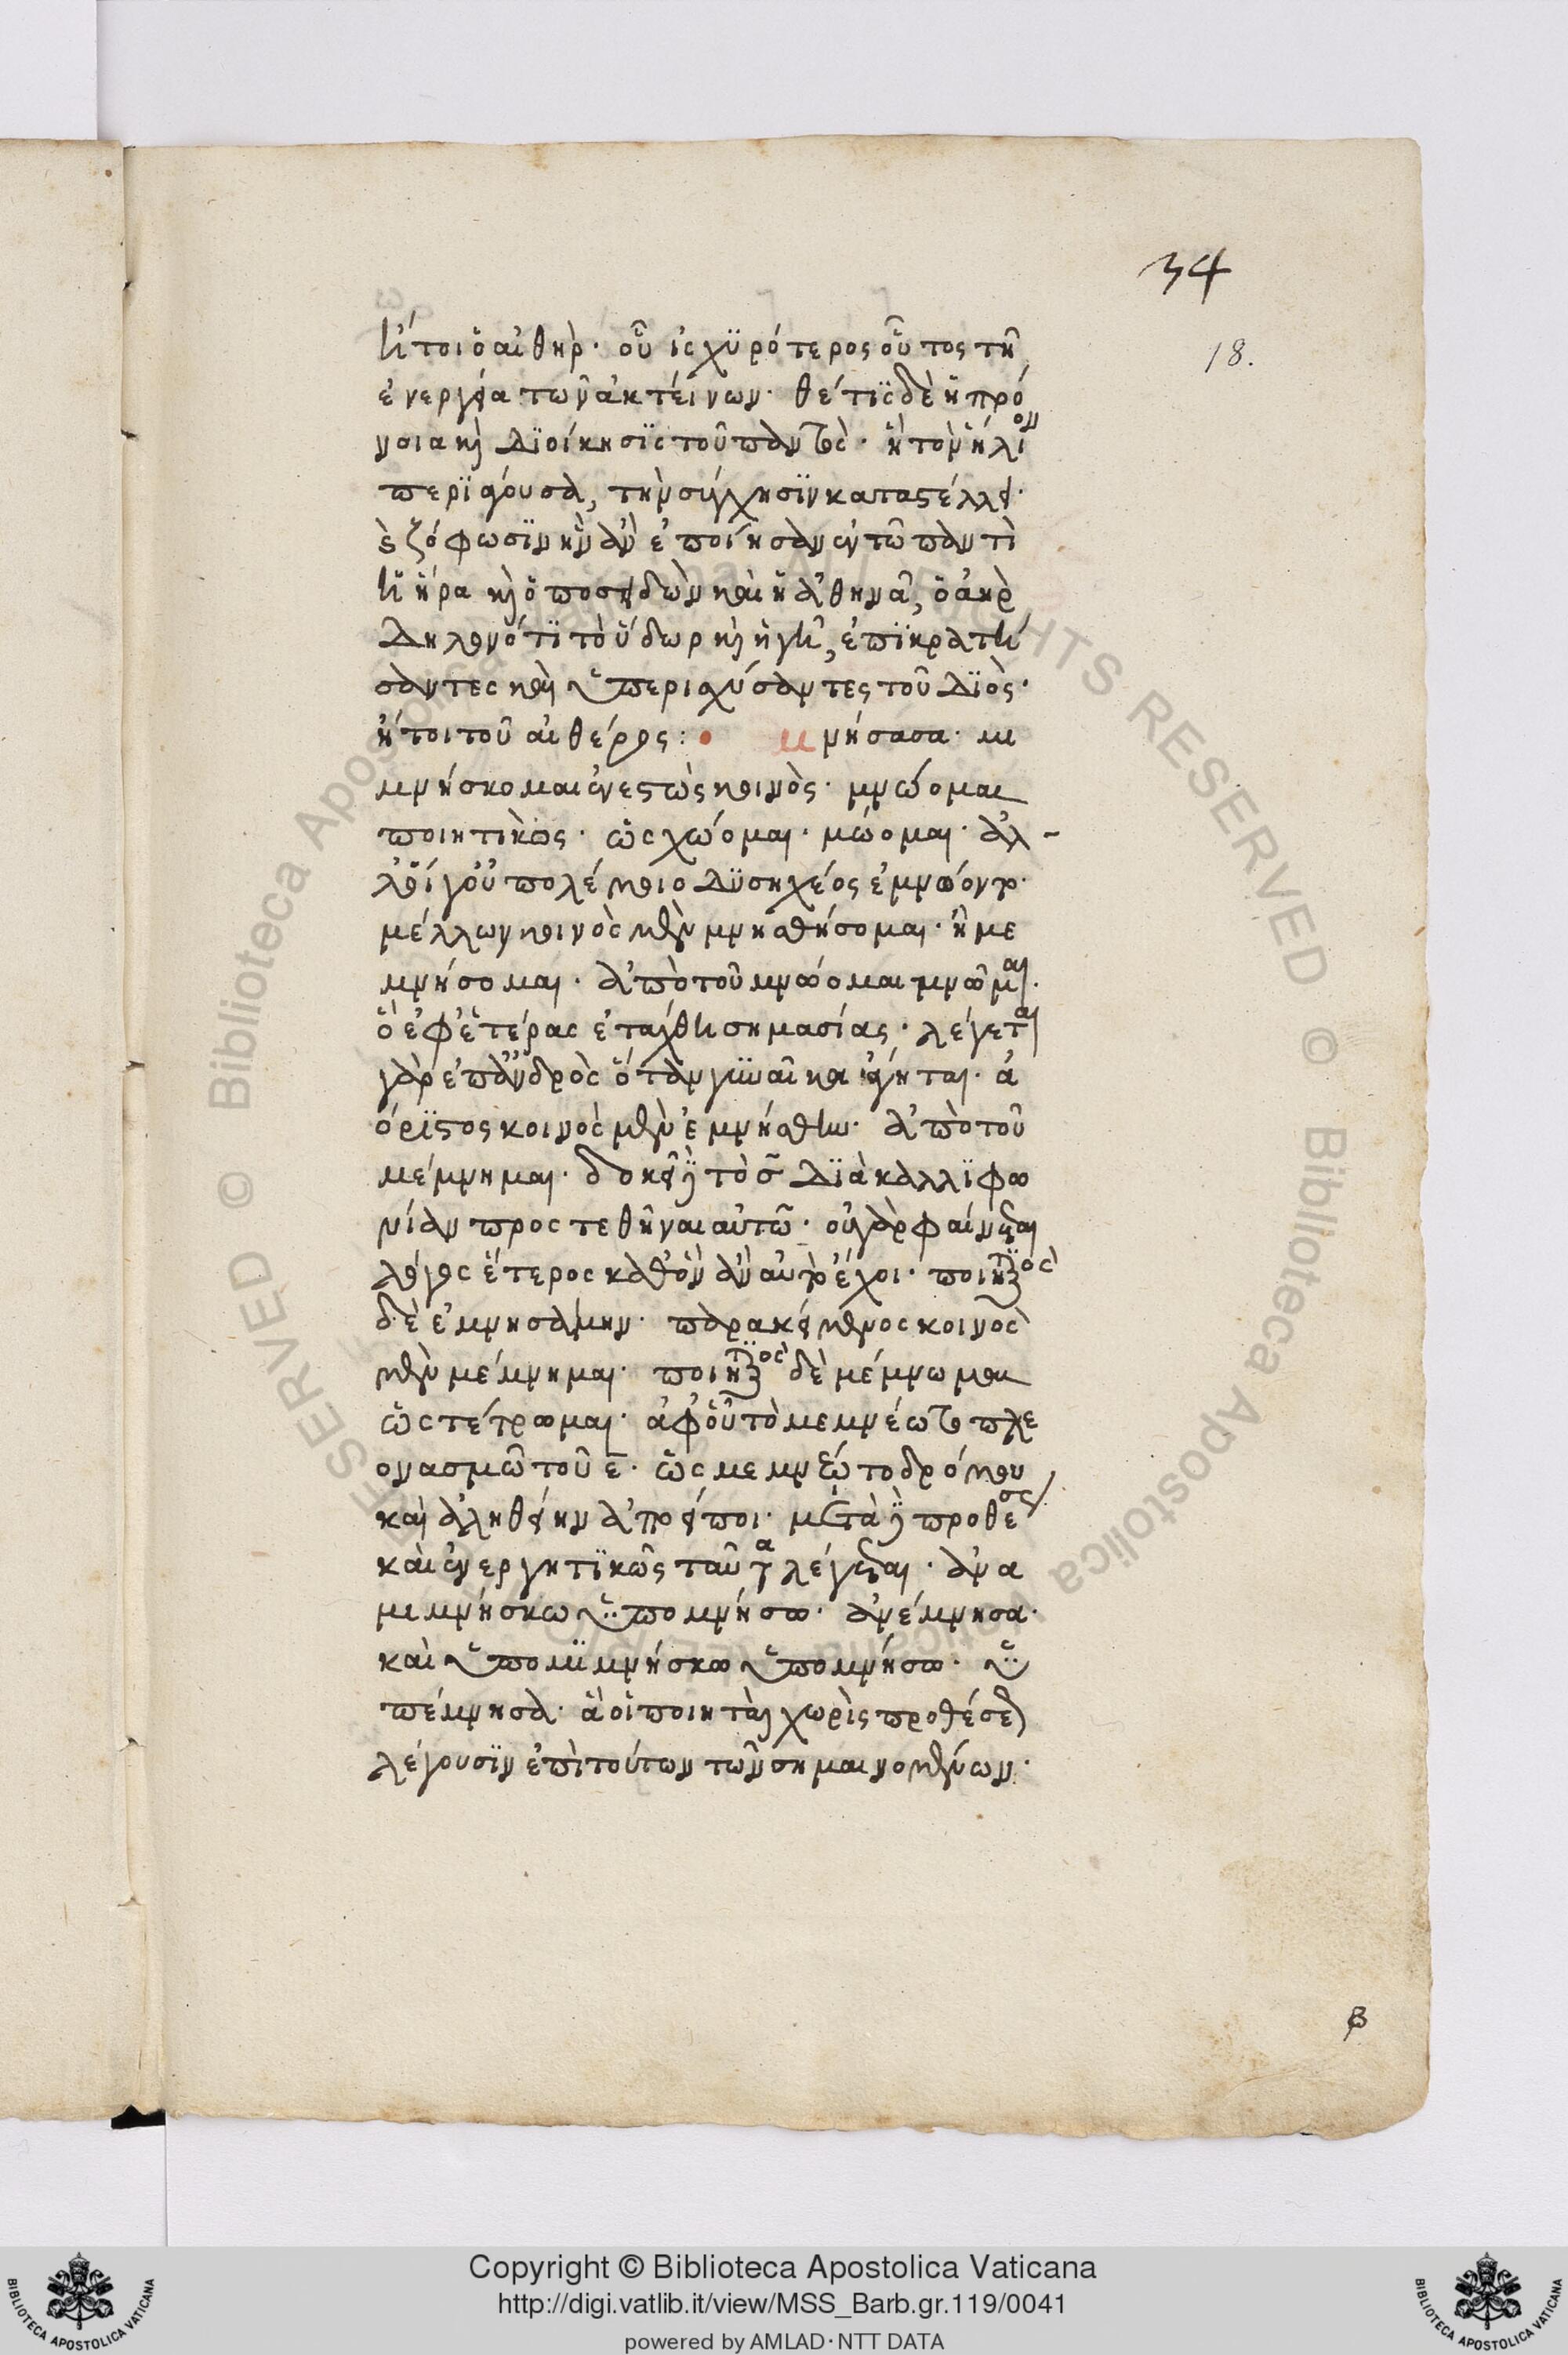 34
18.
ἤτοι ὁ αἰθήρ· οὗ ἰσχϋρότερος οὗτος τῆ
ἐνεργεία τῶν ἀκτείνων· θέτϊς δὲ ἡ πρό
νοια καὶ Δϊοίκησϊς τοῦ παντὸς· ἣ τὸν ἥλιον
περϊάγουσα, τὴν σύγχησϊν καταστέλλει·
ἐζόφωσϊν ἣν ἂν ἐποίησαν ἐν τῶ παντὶ
ἡ ἥρα καὶ ὁ ποσειδῶν καὶ ἡ ἀθηνᾶ, ὁ ἀὴρ
Δηλονότϊ τὸ ὕδωρ καὶ ἡ γῆ, ἐπϊκρατή
σαντες καὶ ὑπερισχύσαντες τοῦ Δϊὸς·
ἤτοι τοῦ αἰθέρος: μνήσασα· μι
μνήσκομαι ἐνεστὼς κοινὸς· μνώομαι
ποιητικῶς· ὡς χώομαι· μώομαι· ἀλ-
λοῒ γὸὐ πολέμοιο Δϋσηχέος ἐμνώοντο·
μέλλων κοινὸς μὲν μνησθήσομαι· ἢ με
μνήσομαι· ἀπὸ τοῦ μνώομαι μνῶμαι·
ὃ ἐφ' ἑτέρας ἐτάχθη σημασίας· λέγεται
γὰρ ἐπ' ἀνδρὸς ὅταν γυναῖκα ἄγηται· ἀ
όρϊστος κοινὸς μὲν ἐμνήσθην· ἀπὸ τοῦ
μέμνημαι· δοκεῖ δὲ τὸ σ Δϊὰ καλλϊφω
νίαν προστεθῆναι αὐτῶ· οὐ γὰρ φαίνεται
λόγος ἕτερος καθ' ὃν ἂν αὐτὸ ἔχοι· ποιητικὸς
δὲ ἐμνησάμην· παρακείμενος κοινὸς
μὲν μέμνημαι· ποιητικὸς δὲ μέμνωμαι
ὡς τέτρωμαι· ἀφ' οὗ τὸ μεμνέωτο πλε
ονασμῶ τοῦ ε· ὡς μεμνέῳτο δρόμου
καὶ ἀληθείην ἀποείποι· μετὰ δὲ προθέσεως
καὶ ἐνεργητϊκῶς ταῦτα λέγεται· ἀνα
μιμνήσκω ὑπομνήσω· ἀνέμνησα·
καὶ ὑπομϊμνήσκω ὑπομνήσω· ὑ
πέμνησα· ἃ οἱ ποιηταὶ χωρὶς προθέσεων
λέγουσϊν ἐπὶ τούτων τῶν σημαινομένων·
β
Copyright © Biblioteca Apostolica Vaticana
http://digi.vatlib.it/view/MSS_Barb.gr.119/0041
powered by AMLAD·NTT DATA